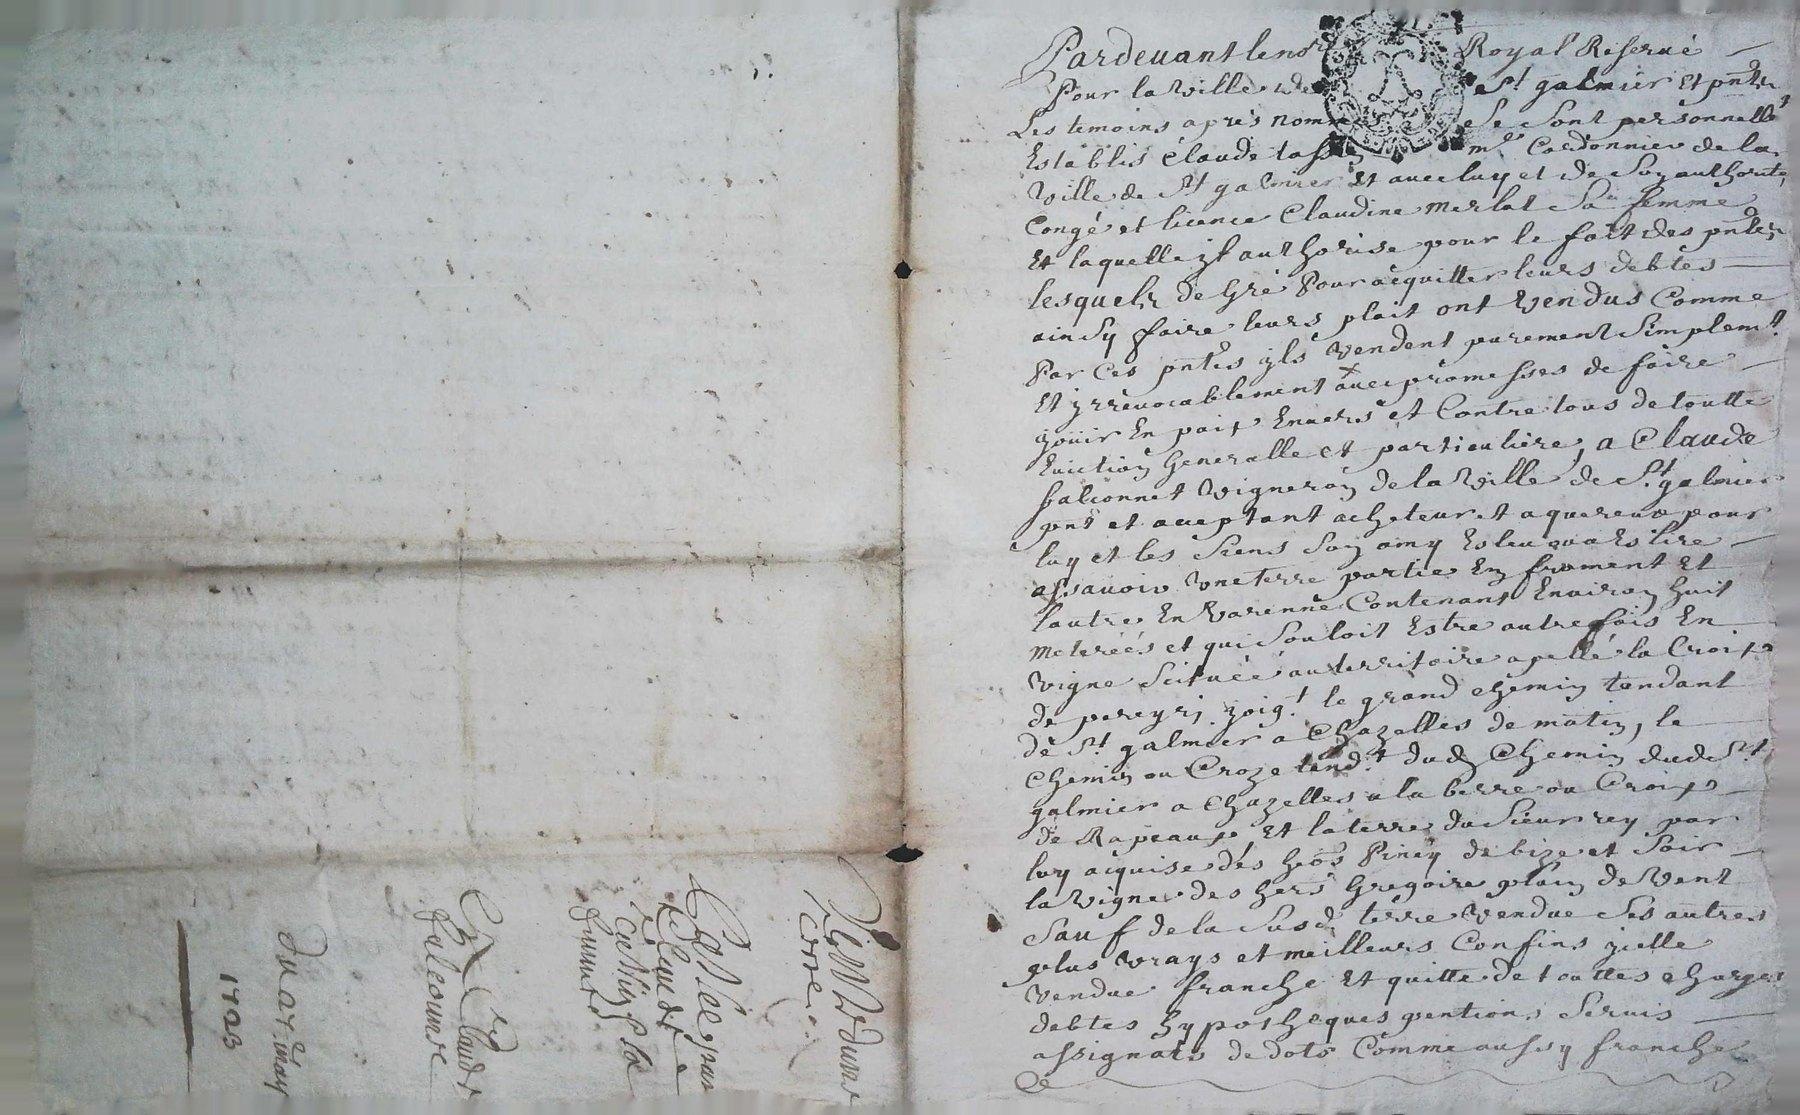 Pardevant le nore Royal Reservé
Pour la Ville de St galmier Et pntz
Les temoins aprés nommés Se Sont personnellt
Establis Claude tassin me Cordonnier de la
Ville de St galmier Et avec luy et de Son authorité
Congé et licence Claudine merlat Sa femme
Et laquelle jl authorise pour le fait des pntes
lesquelz de Gré Pour acquitter leurs debtes
ainSy faire leurs plait ont Vendus Comme
Par Ces pntes yls Vendent purement Simplemt
Et yrrevocablement avec promesses de faire
joüir En paix Envers et Contre tous de toutte
Eviction Generalle et particuliere, a Claude
falconnet Vigneron de la Ville de St galmier
pnt et acceptant acheteur et aquereur pour
luy et les Siens Son amy Esleu ou a Eslire
assavoir Une terre partie En froment Et
lautre En Varenne Contenant Environ huit
meterées et qui Souloit Estre autrefois En
Vigne Scituée au territoire apellé la Croix
de pereyri joigt le grand chemin tendant
de St galmier a Chazelles de matin, le
Chemin ou Croze tendt dud Chemin dude St
galmier a Chazelles a la berre ou Croix
de Rapeaux Et la terre du Sieur rey par
luy acquise des heors Piney de bize et Soir
la Vigne des hers Gregoire plain de Vent
Sauf de la Susd terre Vendue Ses autres
plus Vrays et meilleurs Confins jcelle
Vendue franche Et quitte de touttes charges
debtes hypotheques pentions Servis
assignats de dots Comme aussy franche
terre
Claude
falconnet
Du 21e may
1723